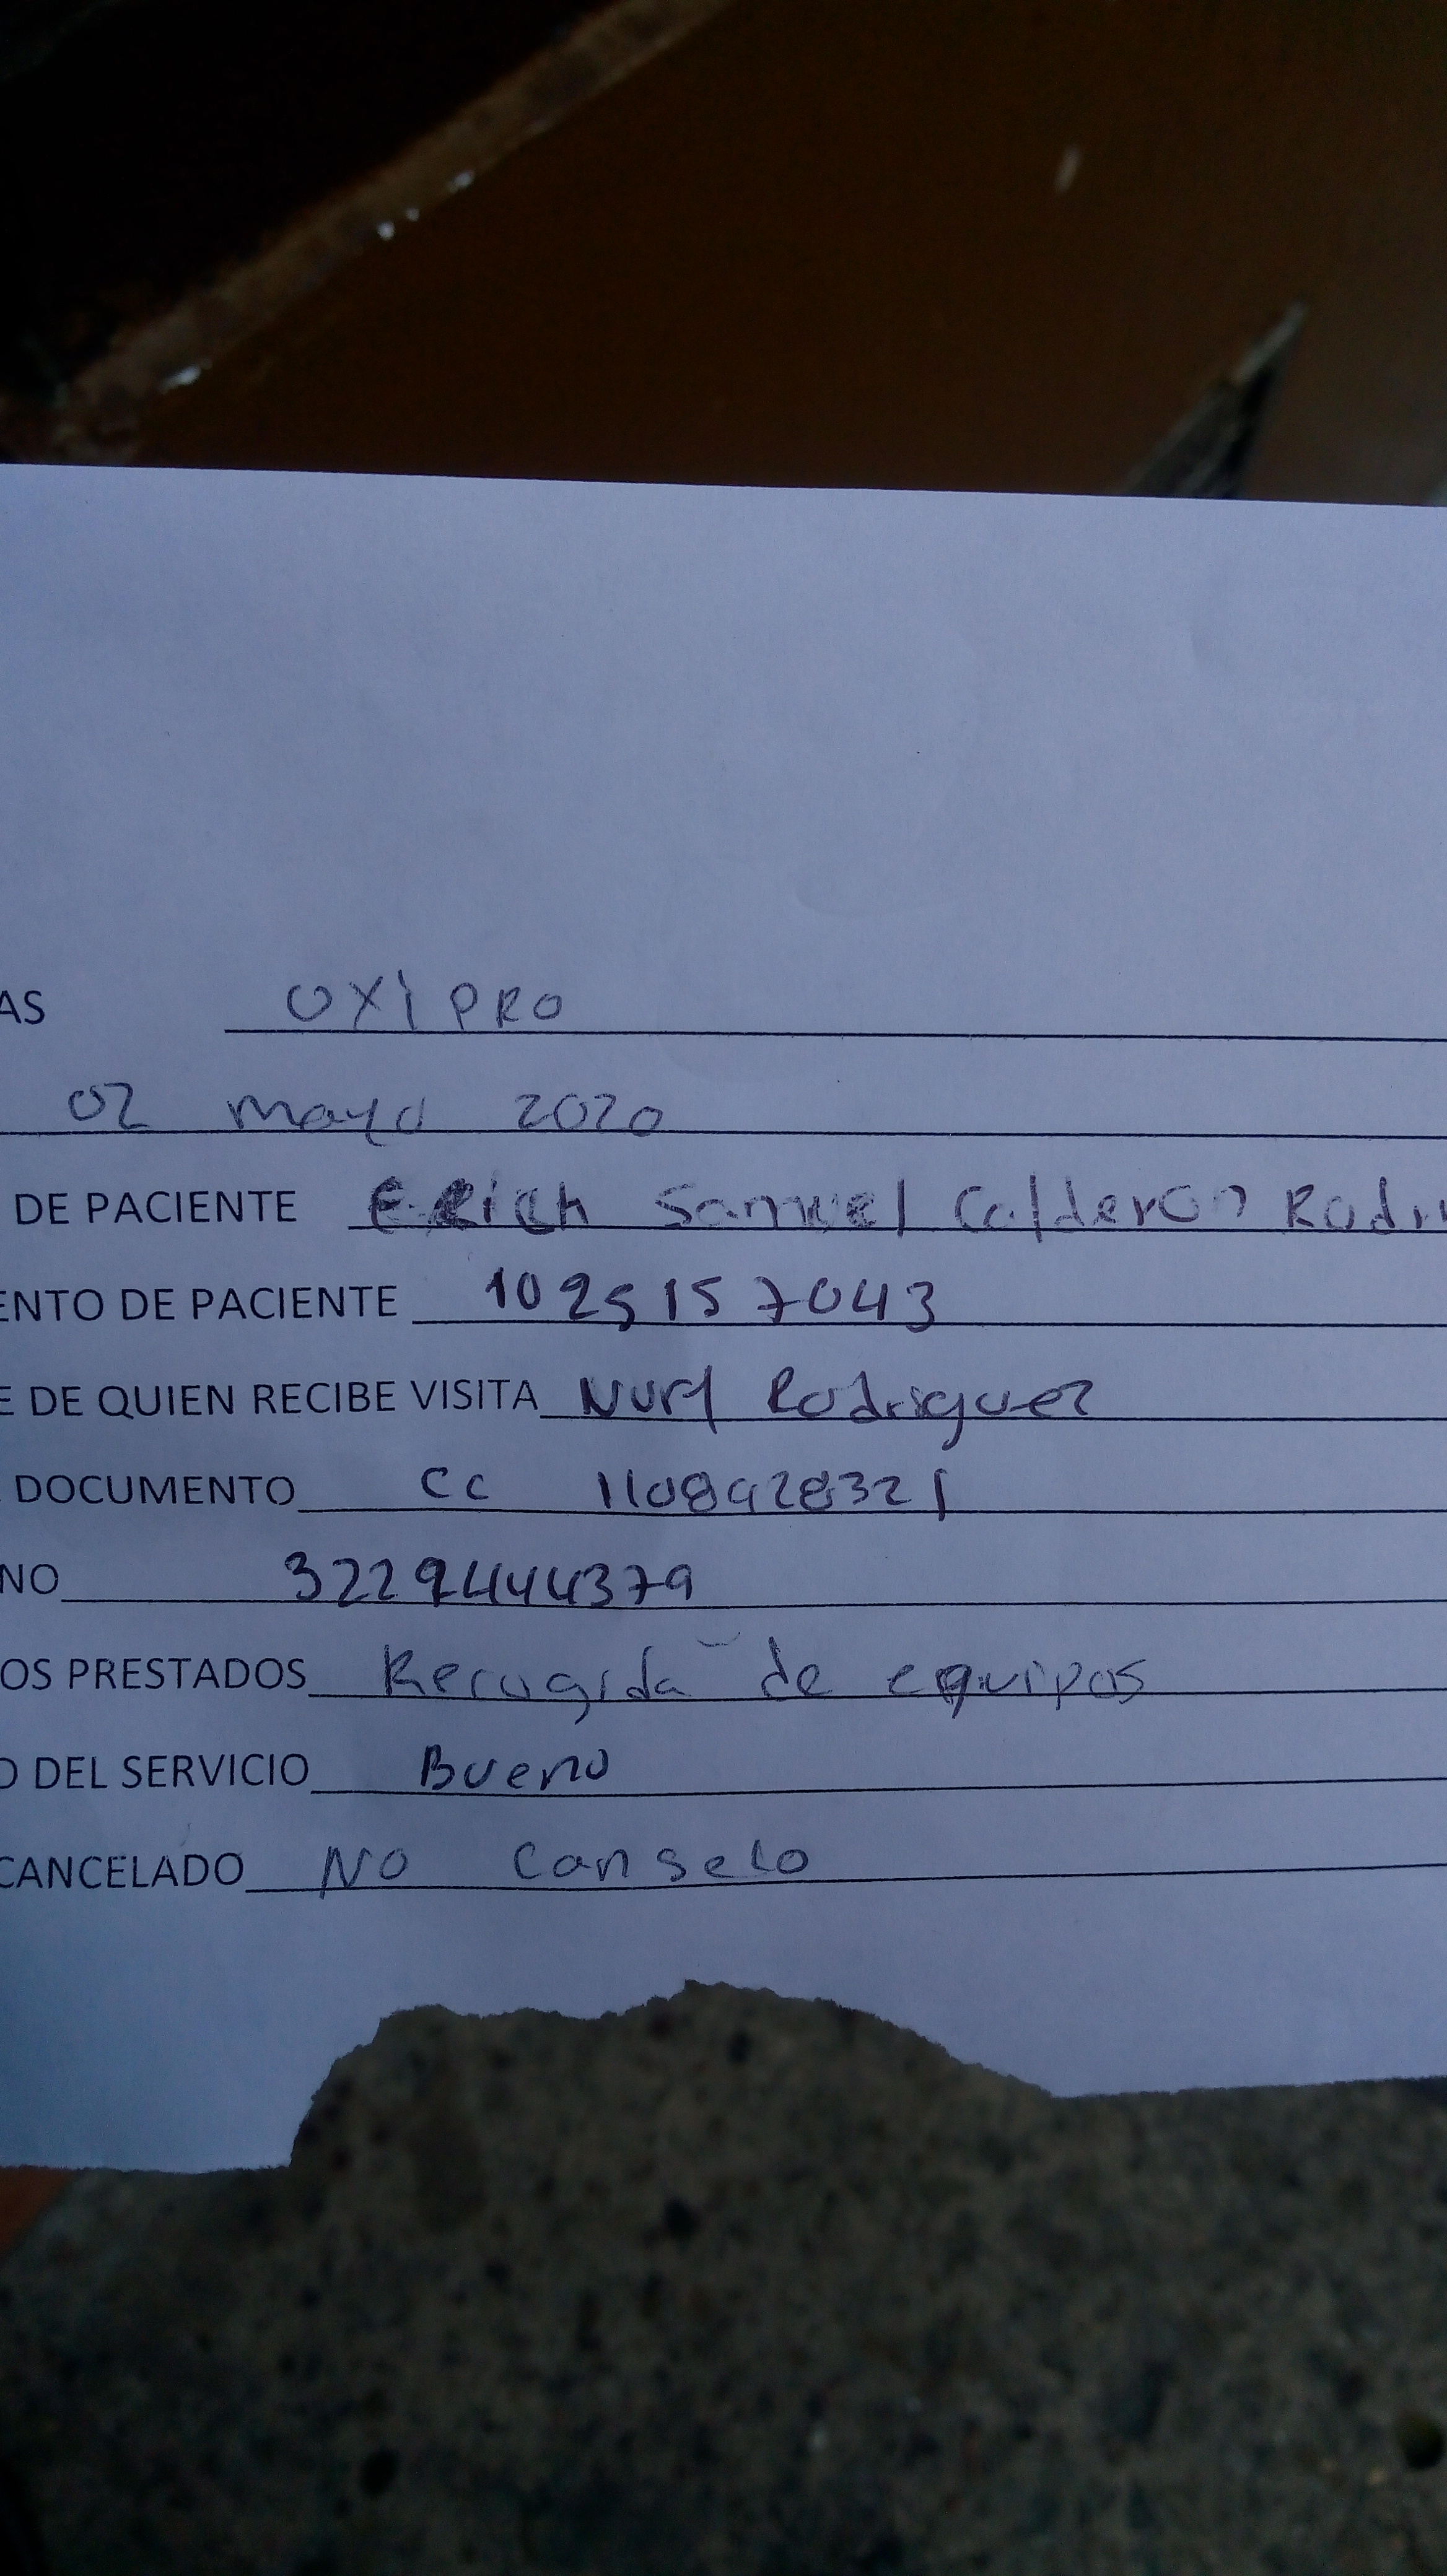 AS OXI PRO
02 mayo 2020
DE PACIENTE Erich Samuel Calderon Rodri
ENTO DE PACIENTE 1025157043
E DE QUIEN RECIBE VISITA Nury Rodriguez
DOCUMENTO CC 1108928321
NO 3229444379
OS PRESTADOS Recogida de equipos
O DEL SERVICIO Bueno
CANCELADO NO Canselo